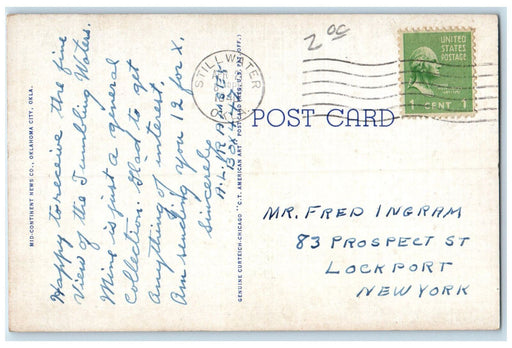 Happy to receive the fine
View of the Tumbling Waters.
Mine is just a general
Collection. Glad to get
Anything of interest.
Am sending you 12 for X.
Sincerely
MID-CONTINENT NEWS CO., OKLAHOMA CITY, OKLA.
GENUINE CURTEICH-CHICAGO "C.T. AMERICAN ART" POST CARD (REG. U.S. PAT. OFF.)
200
STILLWATER
OKLA.
UNITED
STATES
POSTAGE
1 CENT 1
POST CARD
MR. FRED INGRAM
83 PROSPECT ST
LOCKPORT
NEW YORK